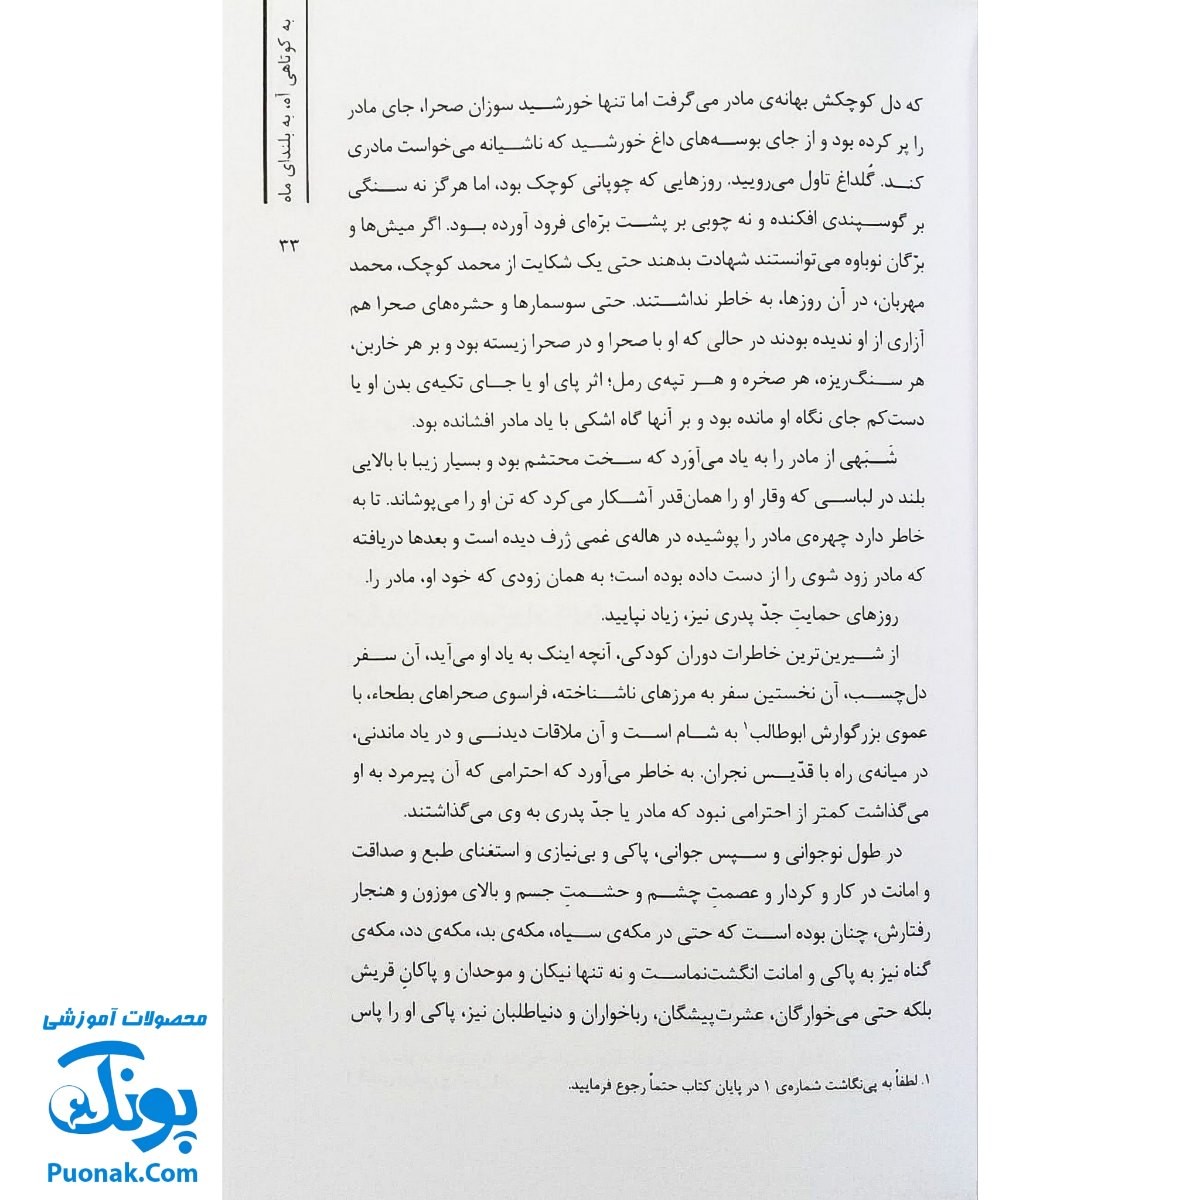 به کوتاهی آه، به بلندای ماه
۳۳
که دل کوچکش بهانه‌ی مادر می‌گرفت اما تنها خورشید سوزان صحرا، جای مادر
را پر کرده بود و از جای بوسه‌های داغ خورشید که ناشیانه می‌خواست مادری
کند. گُلداغ تاول می‌رویید. روزهایی که چوپانی کوچک بود، اما هرگز نه سنگی
بر گوسپندی افکنده و نه چوبی بر پشت برّه‌ای فرود آورده بود. اگر میش‌ها و
برّگان نوباوه می‌توانستند شهادت بدهند حتی یک شکایت از محمد کوچک، محمد
مهربان، در آن روزها، به خاطر نداشتند. حتی سوسمارها و حشره‌های صحرا هم
آزاری از او ندیده بودند در حالی که او با صحرا و در صحرا زیسته بود و بر هر خاربن،
هر سنگ‌ریزه، هر صخره و هر تپه‌ی رمل؛ اثر پای او یا جای تکیه‌ی بدن او یا
دست‌کم جای نگاه او مانده بود و بر آنها گاه اشکی با یاد مادر افشانده بود.
شَبَهی از مادر را به یاد می‌آوَرد که سخت محتشم بود و بسیار زیبا با بالایی
بلند در لباسی که وقار او را همان‌قدر آشکار می‌کرد که تن او را می‌پوشاند. تا به
خاطر دارد چهره‌ی مادر را پوشیده در هاله‌ی غمی ژرف دیده است و بعدها دریافته
که مادر زود شوی را از دست داده بوده است؛ به همان زودی که خود او، مادر را.
روزهای حمایتِ جدّ پدری نیز، زیاد نپایید.
از شیرین‌ترین خاطرات دوران کودکی، آنچه اینک به یاد او می‌آید، آن سفر
دل‌چسب، آن نخستین سفر به مرزهای ناشناخته، فراسوی صحراهای بطحاء، با
عموی بزرگوارش ابوطالب۱ به شام است و آن ملاقات دیدنی و در یاد ماندنی،
در میانه‌ی راه با قدّیس نجران. به خاطر می‌آورد که احترامی که آن پیرمرد به او
می‌گذاشت کمتر از احترامی نبود که مادر یا جدّ پدری به وی می‌گذاشتند.
در طول نوجوانی و سپس جوانی، پاکی و بی‌نیازی و استغنای طبع و صداقت
و امانت در کار و کردار و عصمتِ چشم و حشمتِ جسم و بالای موزون و هنجار
رفتارش، چنان بوده است که حتی در مکه‌ی سیاه، مکه‌ی بد، مکه‌ی دد، مکه‌ی
گناه نیز به پاکی و امانت انگشت‌نماست و نه تنها نیکان و موحدان و پاکانِ قریش
بلکه حتی می‌خوارگان، عشرت‌پیشگان، رباخواران و دنیاطلبان نیز، پاکی او را پاس
۱. لطفاً به پی‌نگاشت شماره‌ی ۱ در پایان کتاب حتماً رجوع فرمایید.
محصولات آموزشی
پونک
Puonak.Com